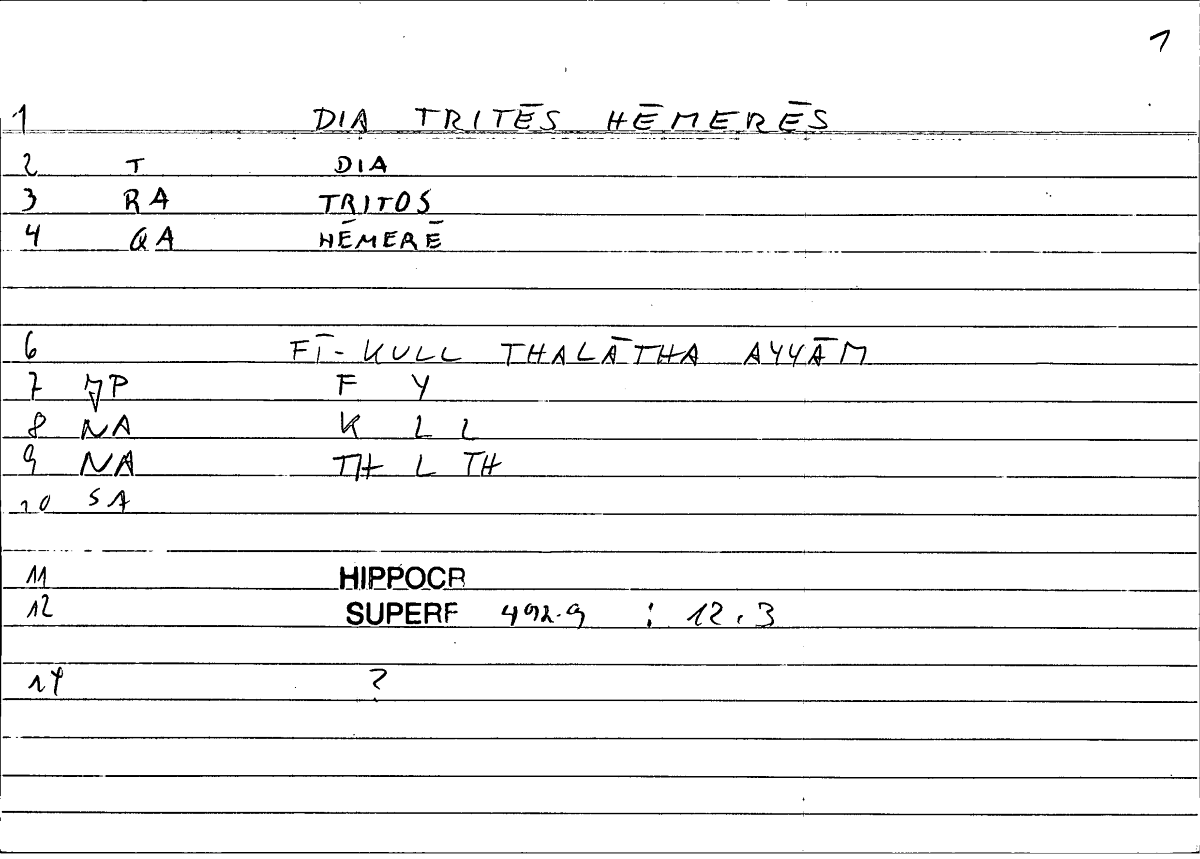 1
1 DIA TRITĒS HĒMERĒS
2 T DIA
3 RA TRITOS
4 QA HĒMERĒ
6 FĪ-KULL THALĀTHA AYYĀM
7 P F Y
8 NA K L L
9 NA TH L TH
10 SA
11 HIPPOCR
12 SUPERF 492.9 : 12.3
14 ?